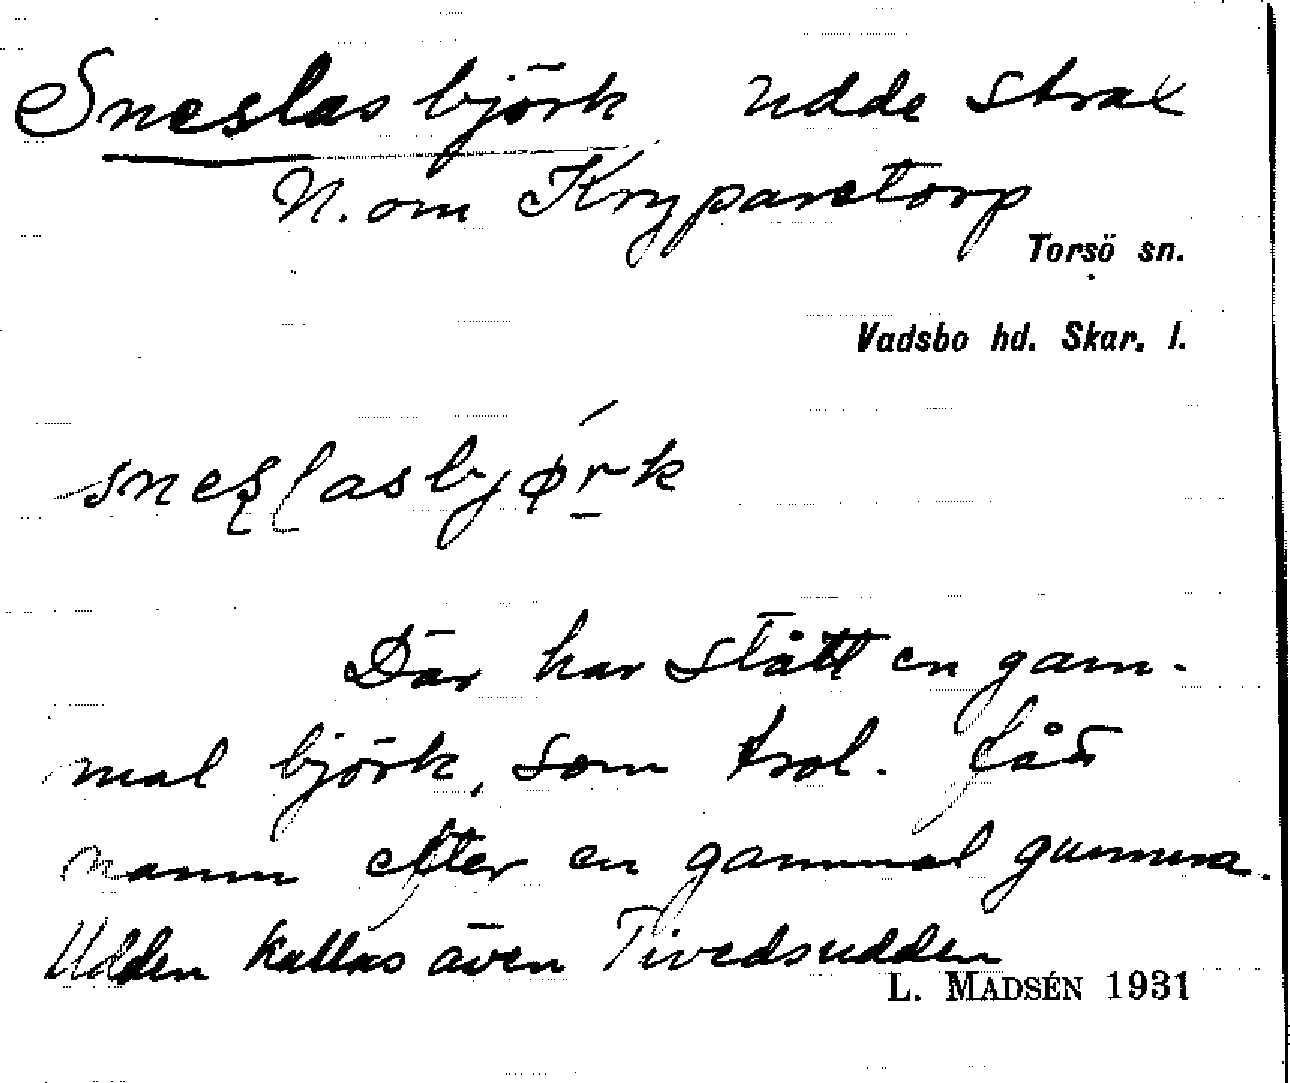 Sneslasbjörk udde strax
N. om Kryparetorp
Torsö sn.
Vadsbo hd. Skar. l.
sneslasbjørk
Där har stått en gam-
mal björk, som trol. fått
namn efter en gammal gumma.
Udden kallas även Tivedsudden
L. MADSÉN 1931